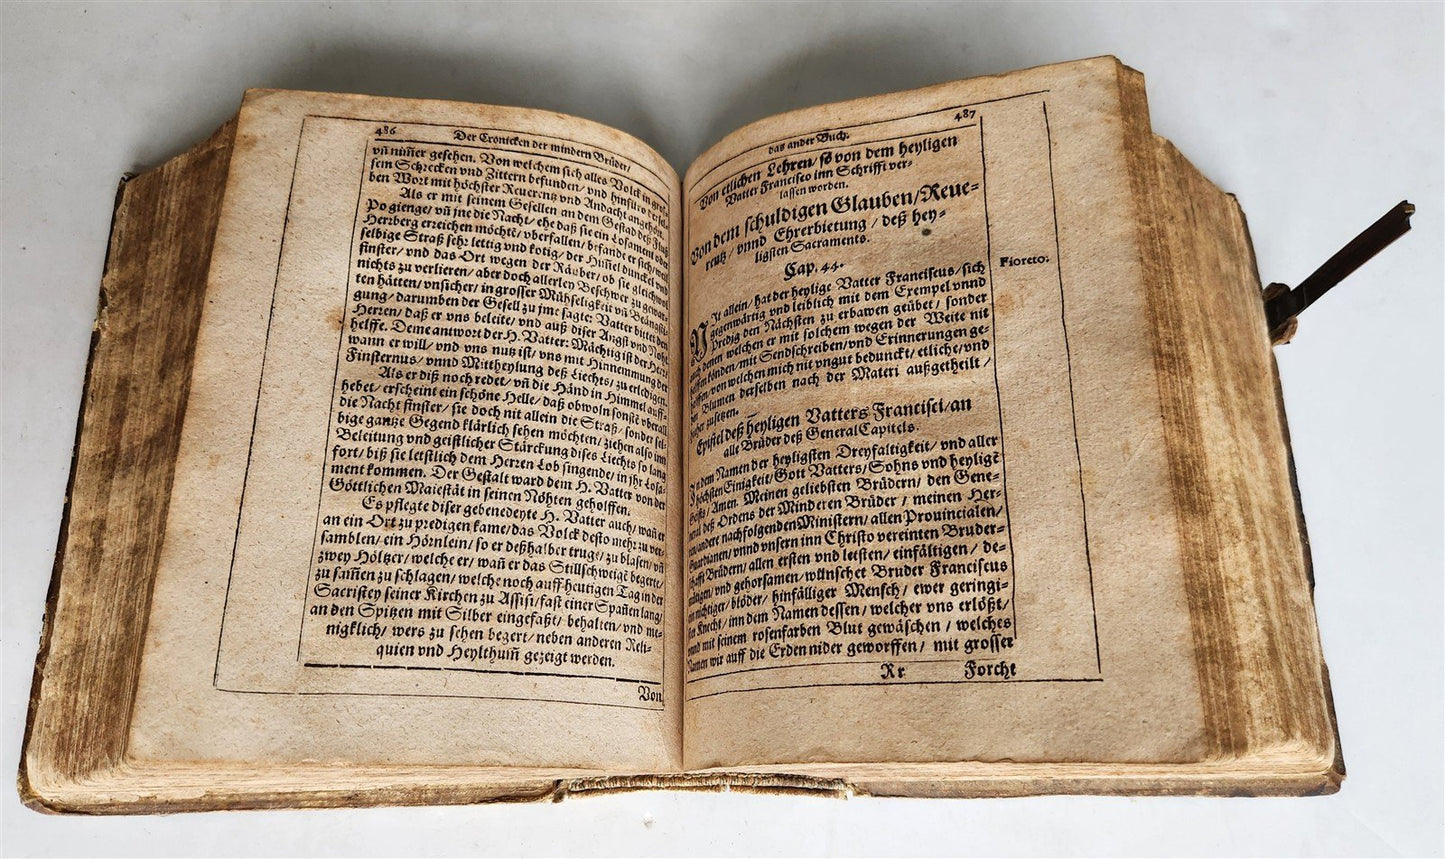 486 Der Cronicken der mindern Brüder/
vñ nim̃er gesehen. Von welchem sich alles Volck in gros-
sem Schrecken vnd Zittern befunden/ vnd hinfüro
ben Wort mit höchster Reuerentz vnd Andacht angehört.
Als er mit seinem Gesellen an dem Gestad deß Fluß
Po gienge/ vñ jne die Nacht/ ehe daß sie ein Losament oder
Herrberg erreichen möchtē/ vberfallen/ befande er sich/ weil
selbige Straß sehr lettig vnd kotig/ der Him̃el dunckel vnd
finster/ vnd das Ort wegen der Räuber/ ob sie gleichwol
nichts zu verlieren/ aber doch allerley Beschwer zu gewar-
ten hätten/ vnsicher/ in grosser Mühseligkeit vñ Beängsti-
gung/ darumben der Gesell zu jme sagte: Vatter bittet den
Herren/ daß er vns beleite/ vnd auß diser Angst vnd Noht
helffe. Deme antwort der H. Vatter: Mächtig ist der Herr/
wann er will/ vnd vns nutz ist/ vns mit Hinnemmung der
Finsternus/ vnnd Mittheylung deß Liechts/ zu erledigen.
Als er diß noch redet/ vñ die Händ in Himmel auff-
hebet/ erscheint ein schöne Helle/ daß obwoln sonstē vberall
die Nacht finster/ sie doch nit allein die Straß/ sonder sel-
bige gantze Gegend klärlich sehen möchten/ ziehen also inn
Beleitung vnd geistlicher Stärckung dises Liechts so lang
fort/ biß sie letstlich dem Herzen Lob singende/ in jhr Losa-
ment kommen. Der Gestalt ward dem H. Vatter von der
Göttlichen Maiestät in seinen Nöhten geholffen.
Es pflegte diser gebenedeyte H. Vatter auch/ wañ er
an ein Ort zu predigen kame/ das Volck desto mehr zu ver-
samblen/ ein Hörnlein/ so er deßhalber truge/ zu blasen/ vñ
zwey Höltzer/ welche er/ wañ er das Stillschweigē begerte/
zu sam̃en zu schlagen/ welche noch auff heutigen Tag in der
Sacristey seiner Kirchen zu Assisi/ fast einer Spañen lang/
an den Spitzen mit Silber eingefaßt/ behalten/ vnd me-
nigklich/ wers zu sehen begert/ neben anderen Reli-
quien vnd Heylthum̃ gezeigt werden.
Von
das ander Buch. 487
Von etlichen Lehren/ so von dem heyligen
Vatter Francisco inn Schrifft ver-
lassen worden.
Von dem schuldigen Glauben/ Reue-
rentz/ vnnd Ehrerbietung/ deß hey-
ligsten Sacraments.
Cap. 44.
Nit allein/ hat der heylige Vatter Franciscus/ sich
gegenwärtig vnd leiblich mit dem Exempel vnnd
Predig den Nächsten zu erbawen geübet/ sonder
auch denen welchen er mit solchem wegen der Weite nit
helffen könden/ mit Sendschreiben/ vnd Erinnerungen ge-
holffen/ von welchen mich nit vngut bedunckt/ etliche/ vnd
Blumen derselben nach der Materi außgetheilt/
hieher zusetzen.
Fioreto.
Epistel deß heyligen Vatters Francisci/ an
alle Brüder deß General Capitels.
In dem Namen der heyligsten Dreyfaltigkeit/ vnd aller
höchsten Einigkeit/ Gott Vatters/ Sohns vnd heyligē
Geists/ Amen. Meinen geliebsten Brüdern/ den Gene-
ral deß Ordens der Minderen Brüder/ meinen Her-
ren/ andere nachfolgenden Ministern/ allen Prouincialen/
Guardianen/ vnnd vnsern inn Christo vereinten Bruder-
schafft Brüdern/ allen ersten vnd letsten/ einfältigen/ de-
mütigen/ vnd gehorsamen/ wünschet Bruder Franciscus
ein nichtiger/ blöder/ hinfälliger Mensch/ ewer geringi-
sten Knecht/ inn dem Namen dessen/ welcher vns erlößt/
vnnd mit seinem rosenfarben Blut gewäschen/ welches
Namen wir auff die Erden nider geworffen/ mit grosser
Rr Forcht